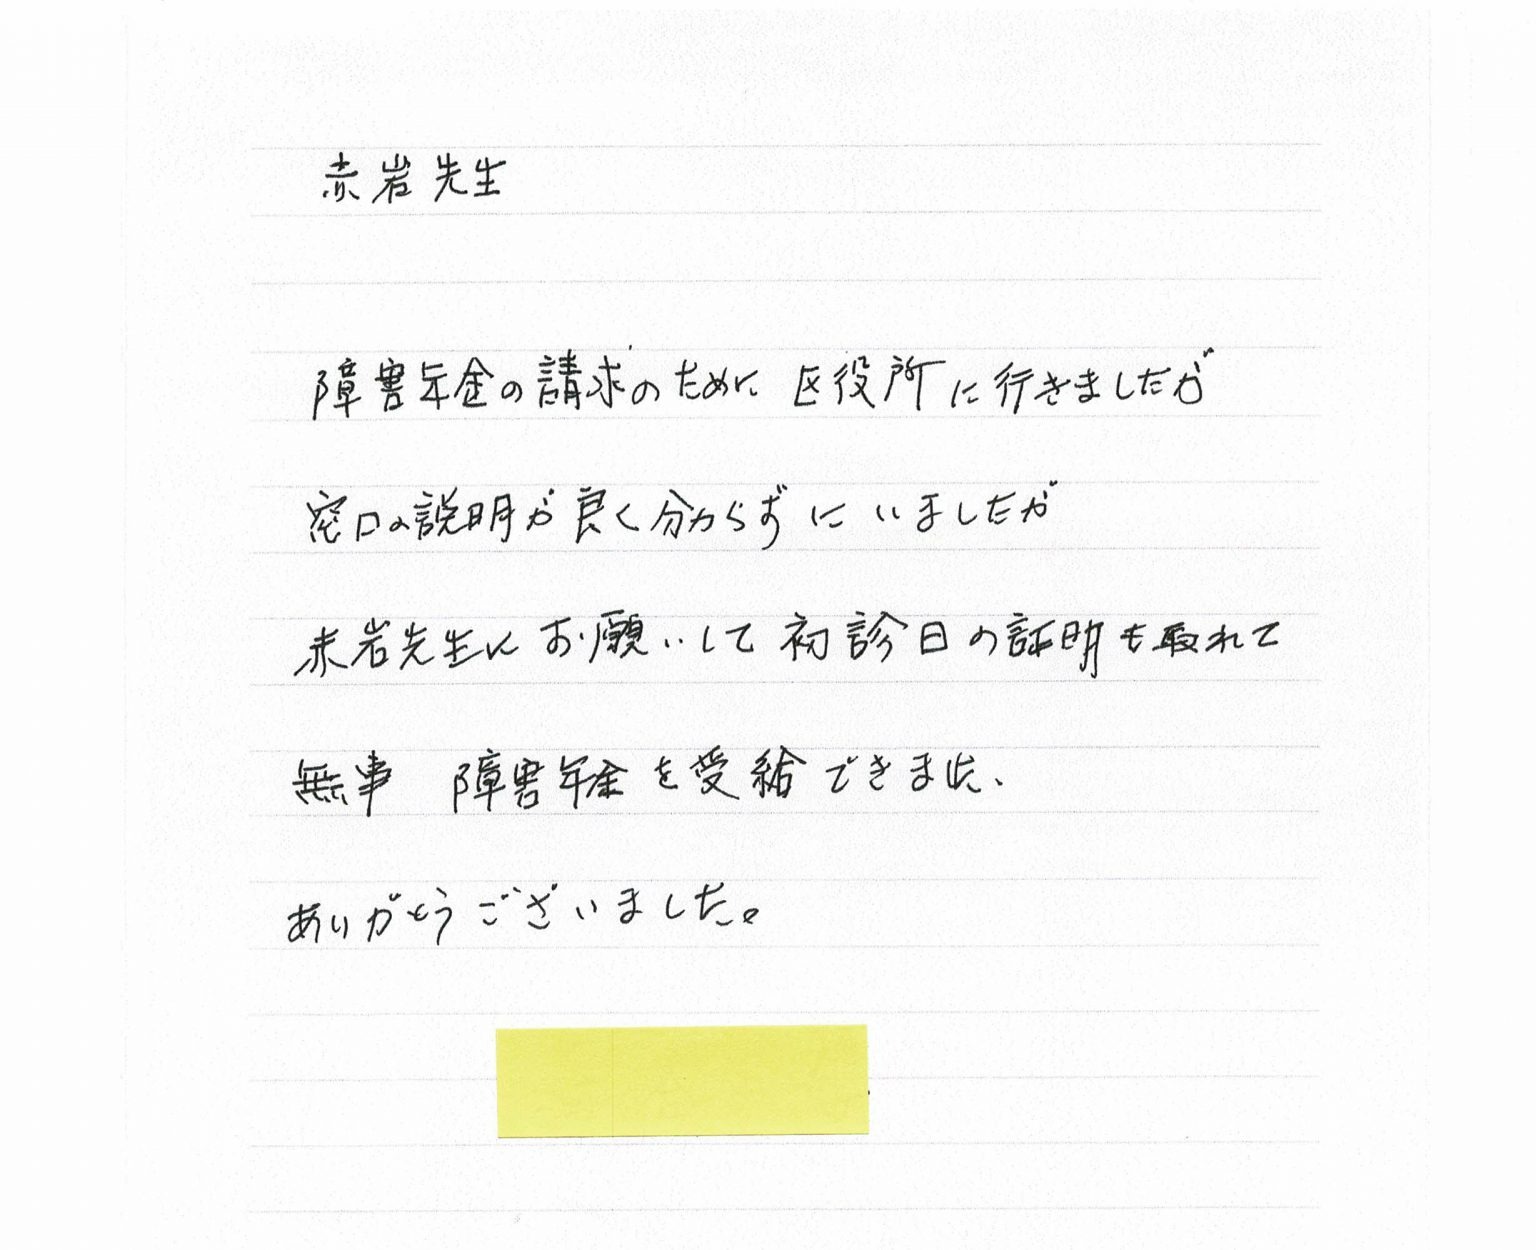 赤岩先生
障害年金の請求のために 区役所に行きましたが
窓口の説明が良く分からずにいましたが
赤岩先生に お願いして 初診日の証明も取れて
無事 障害年金を受給できました、
ありがとうございました。